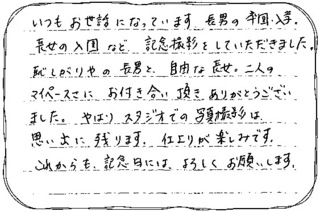 いつもお世話になっています。長男の卒園・入学、
長女の入園など 記念撮影をしていただきました。
恥しがりやの長男と、自由な長女。二人の
マイペースさに お付き合い頂き ありがとうござい
ました。やはり スタジオでの 写真撮影は
思い出に 残ります。仕上りが 楽しみです。
これからも、記念日には、よろしく お願いします。